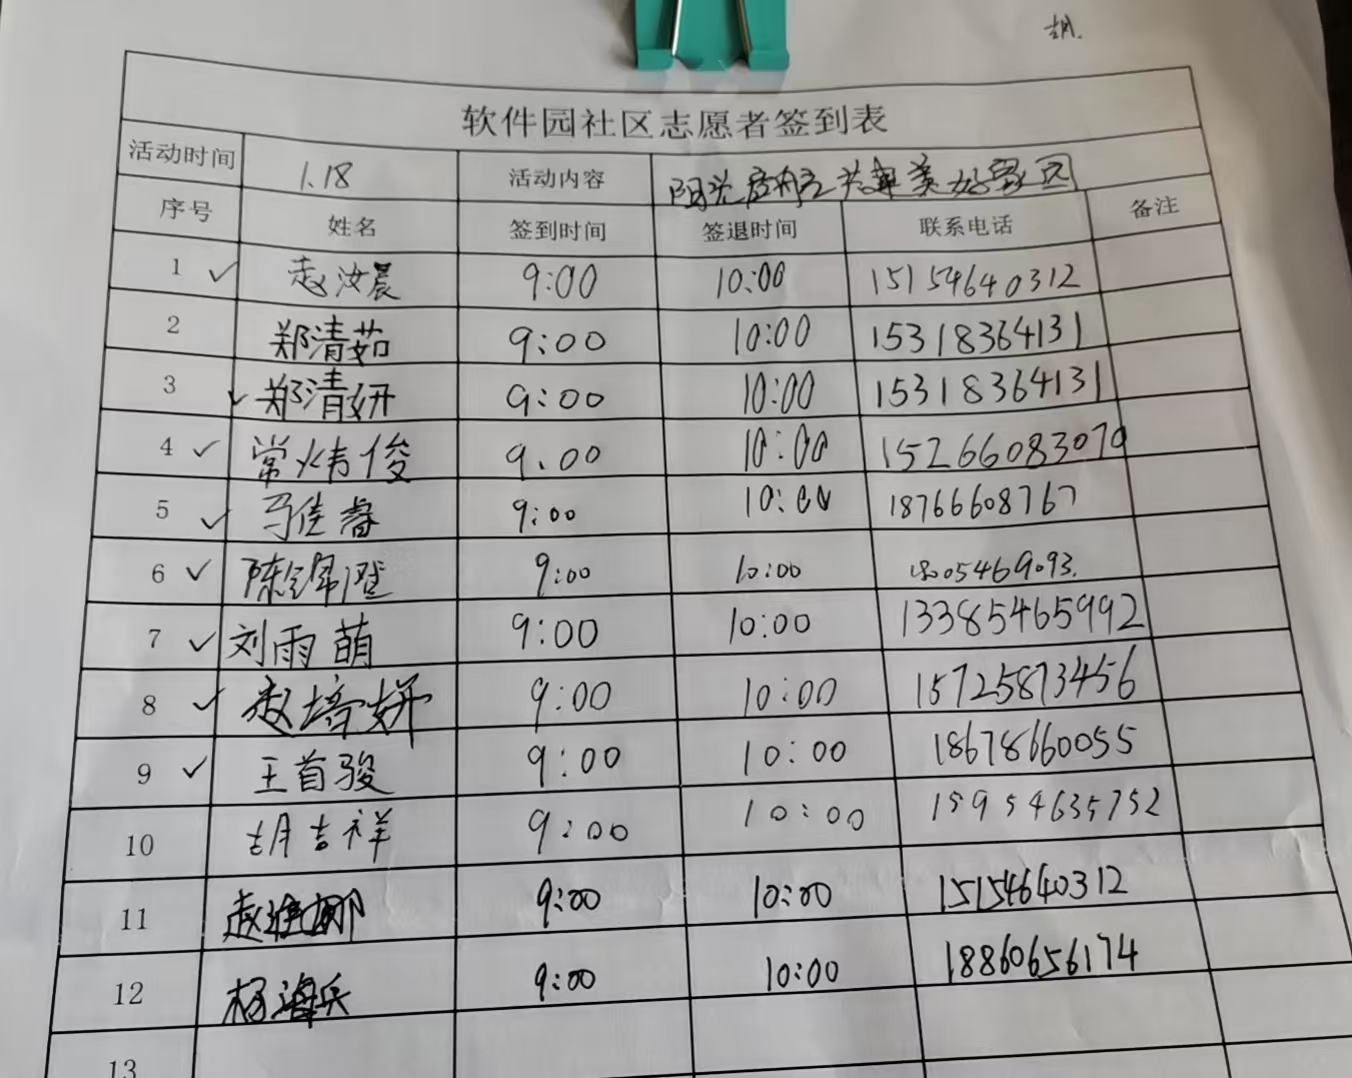 胡
软件园社区志愿者签到表
活动时间 1.18 活动内容 阳光 共建美好家园
序号 姓名 签到时间 签退时间 联系电话 备注
1 ✓ 赵汝晨 9:00 10:00 15154640312
2 郑清茹 9:00 10:00 15318364131
3 ✓ 郑清妍 9:00 10:00 15318364131
4 ✓ 常炜俊 9:00 10:00 15266083070
5 ✓ 马佳睿 9:00 10:00 18766608767
6 ✓ 陈 澄 9:00 10:00
7 ✓ 刘雨萌 9:00 10:00 13385465992
8 ✓ 赵培妍 9:00 10:00 15725873456
9 ✓ 王首骏 9:00 10:00 18678660055
10 胡吉祥 9:00 10:00 15954635752
11 赵 娜 9:00 10:00 15154640312
12 杨海兵 9:00 10:00 18860656174
13